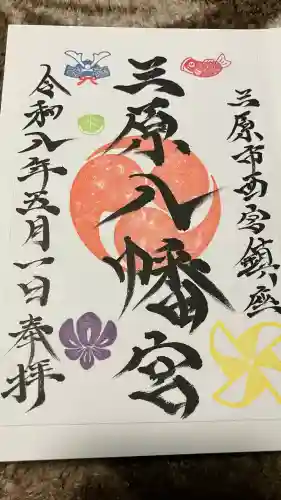 三原市西宮鎮座
三原八幡宮
令和八年五月一日
奉拝